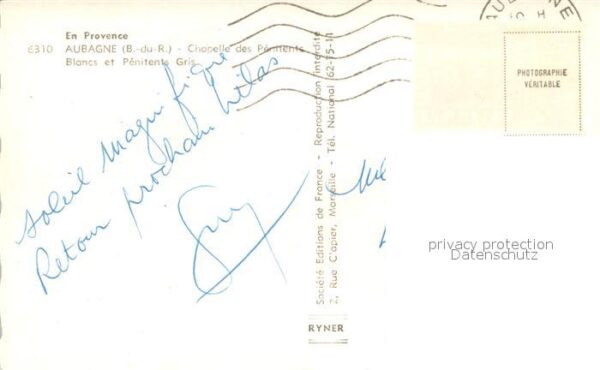 En Provence
6310 AUBAGNE (B.-du-R.) - Chapelle des Pénitents
Blancs et Pénitents Gris
soleil magnifique
Retour prochain hélas
Société Editions de France - Reproduction interdite
2, Rue C'apier, Marseille - Tél. National 62-75-11
RYNER
AUBAGNE
PHOTOGRAPHIE
VÉRITABLE
privacy protection
Datenschutz